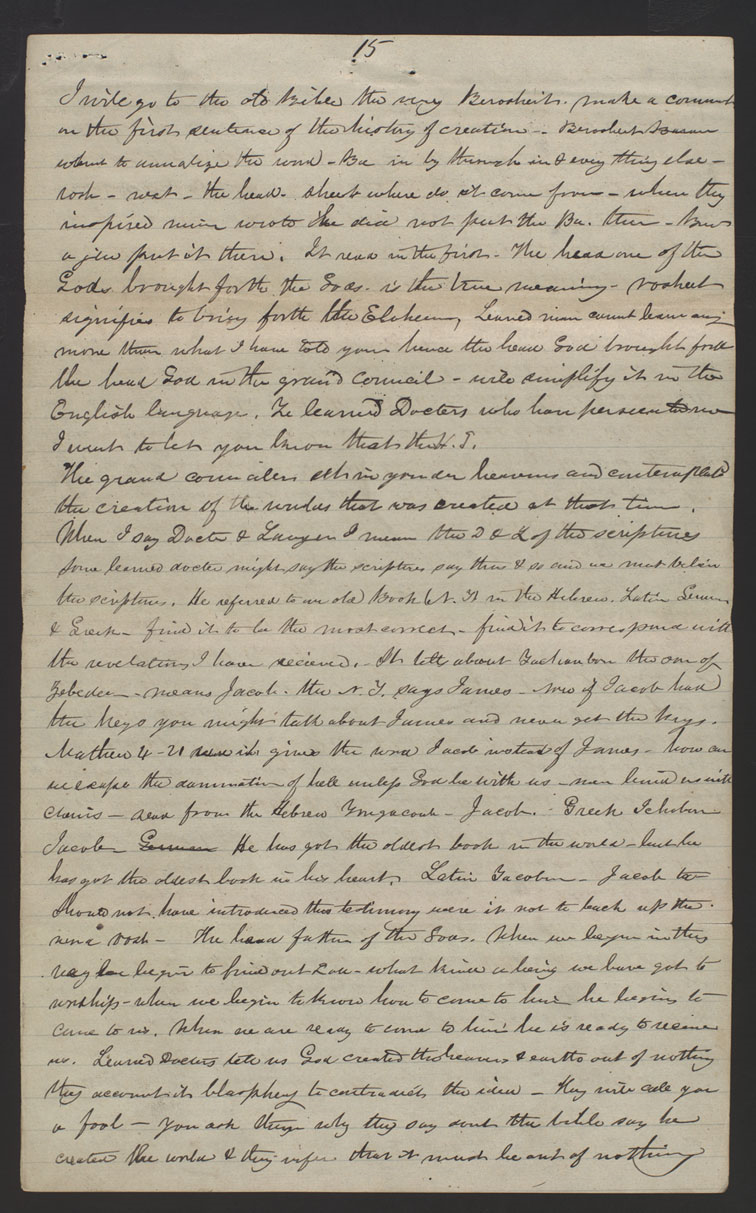 15
I will go to the old Bible the very Berosheit. make a comment
on the first sentence of the history of creation - Berosheit
want to annalize the word - Ba in by through in & every thing else -
rosh - rest - the head - sheet where do it come from - when they
inspired man wrote he did not put the Ba. there - 
a jew put it there. It read in the first - The head one of the
Gods brought forth the Gods - is the true meaning - rosheet
signifies to bring forth the Eloheim, Learned man cannot learn any
more than what I have told you hence the head God brought forth
the head God in the grand council - will simplify it in the
English language. Ye learned Doctors who have persecuted me
I want to let you know that the H. G.
The grand councilers set in yonder heavens and contemplated
the creation of the worlds that was created at that time.
When I say Doctor & Lawyer I mean the D & L of the scriptures
some learned doctor might say the scriptures say thus & so and we must believe
the scriptures. He referred to an old Book (N. T) in the Hebrew. Latin German
& Greek - find it to be the most correct - find it to correspond with
the revelations I have recieved. - It tell about the son of
Zebedee - means Jacob - the N. T. says James - now if Jacob had
the keys you might talk about James and never get the keys.
Mathew 4-21 gives the word Jacob instead of James - how can
we escape the damnation of hell unless God be with us - men bind us with
chains - read from the Hebrew - Jacob. - Greek
Jacob - German He has got the oldest book in the world - but he
has got the oldest book in his heart. Latin - Jacob too
should not have introduced this testimony were it not to back up the
word rosh - The head father of the Gods. When we begin in this
way we begin to find out God - what kind a being we have got to
worship - when we begin to know how to come to him he begins to
come to us. When we are ready to come to him he is ready to recieve
us. Learned Doctors tell us God created the heavens & earth out of nothing
they account it blasphemy to contradict the idea - they will call you
a fool - you ask them why they say dont the bible say he
created the world & they infer that it must be out of nothing